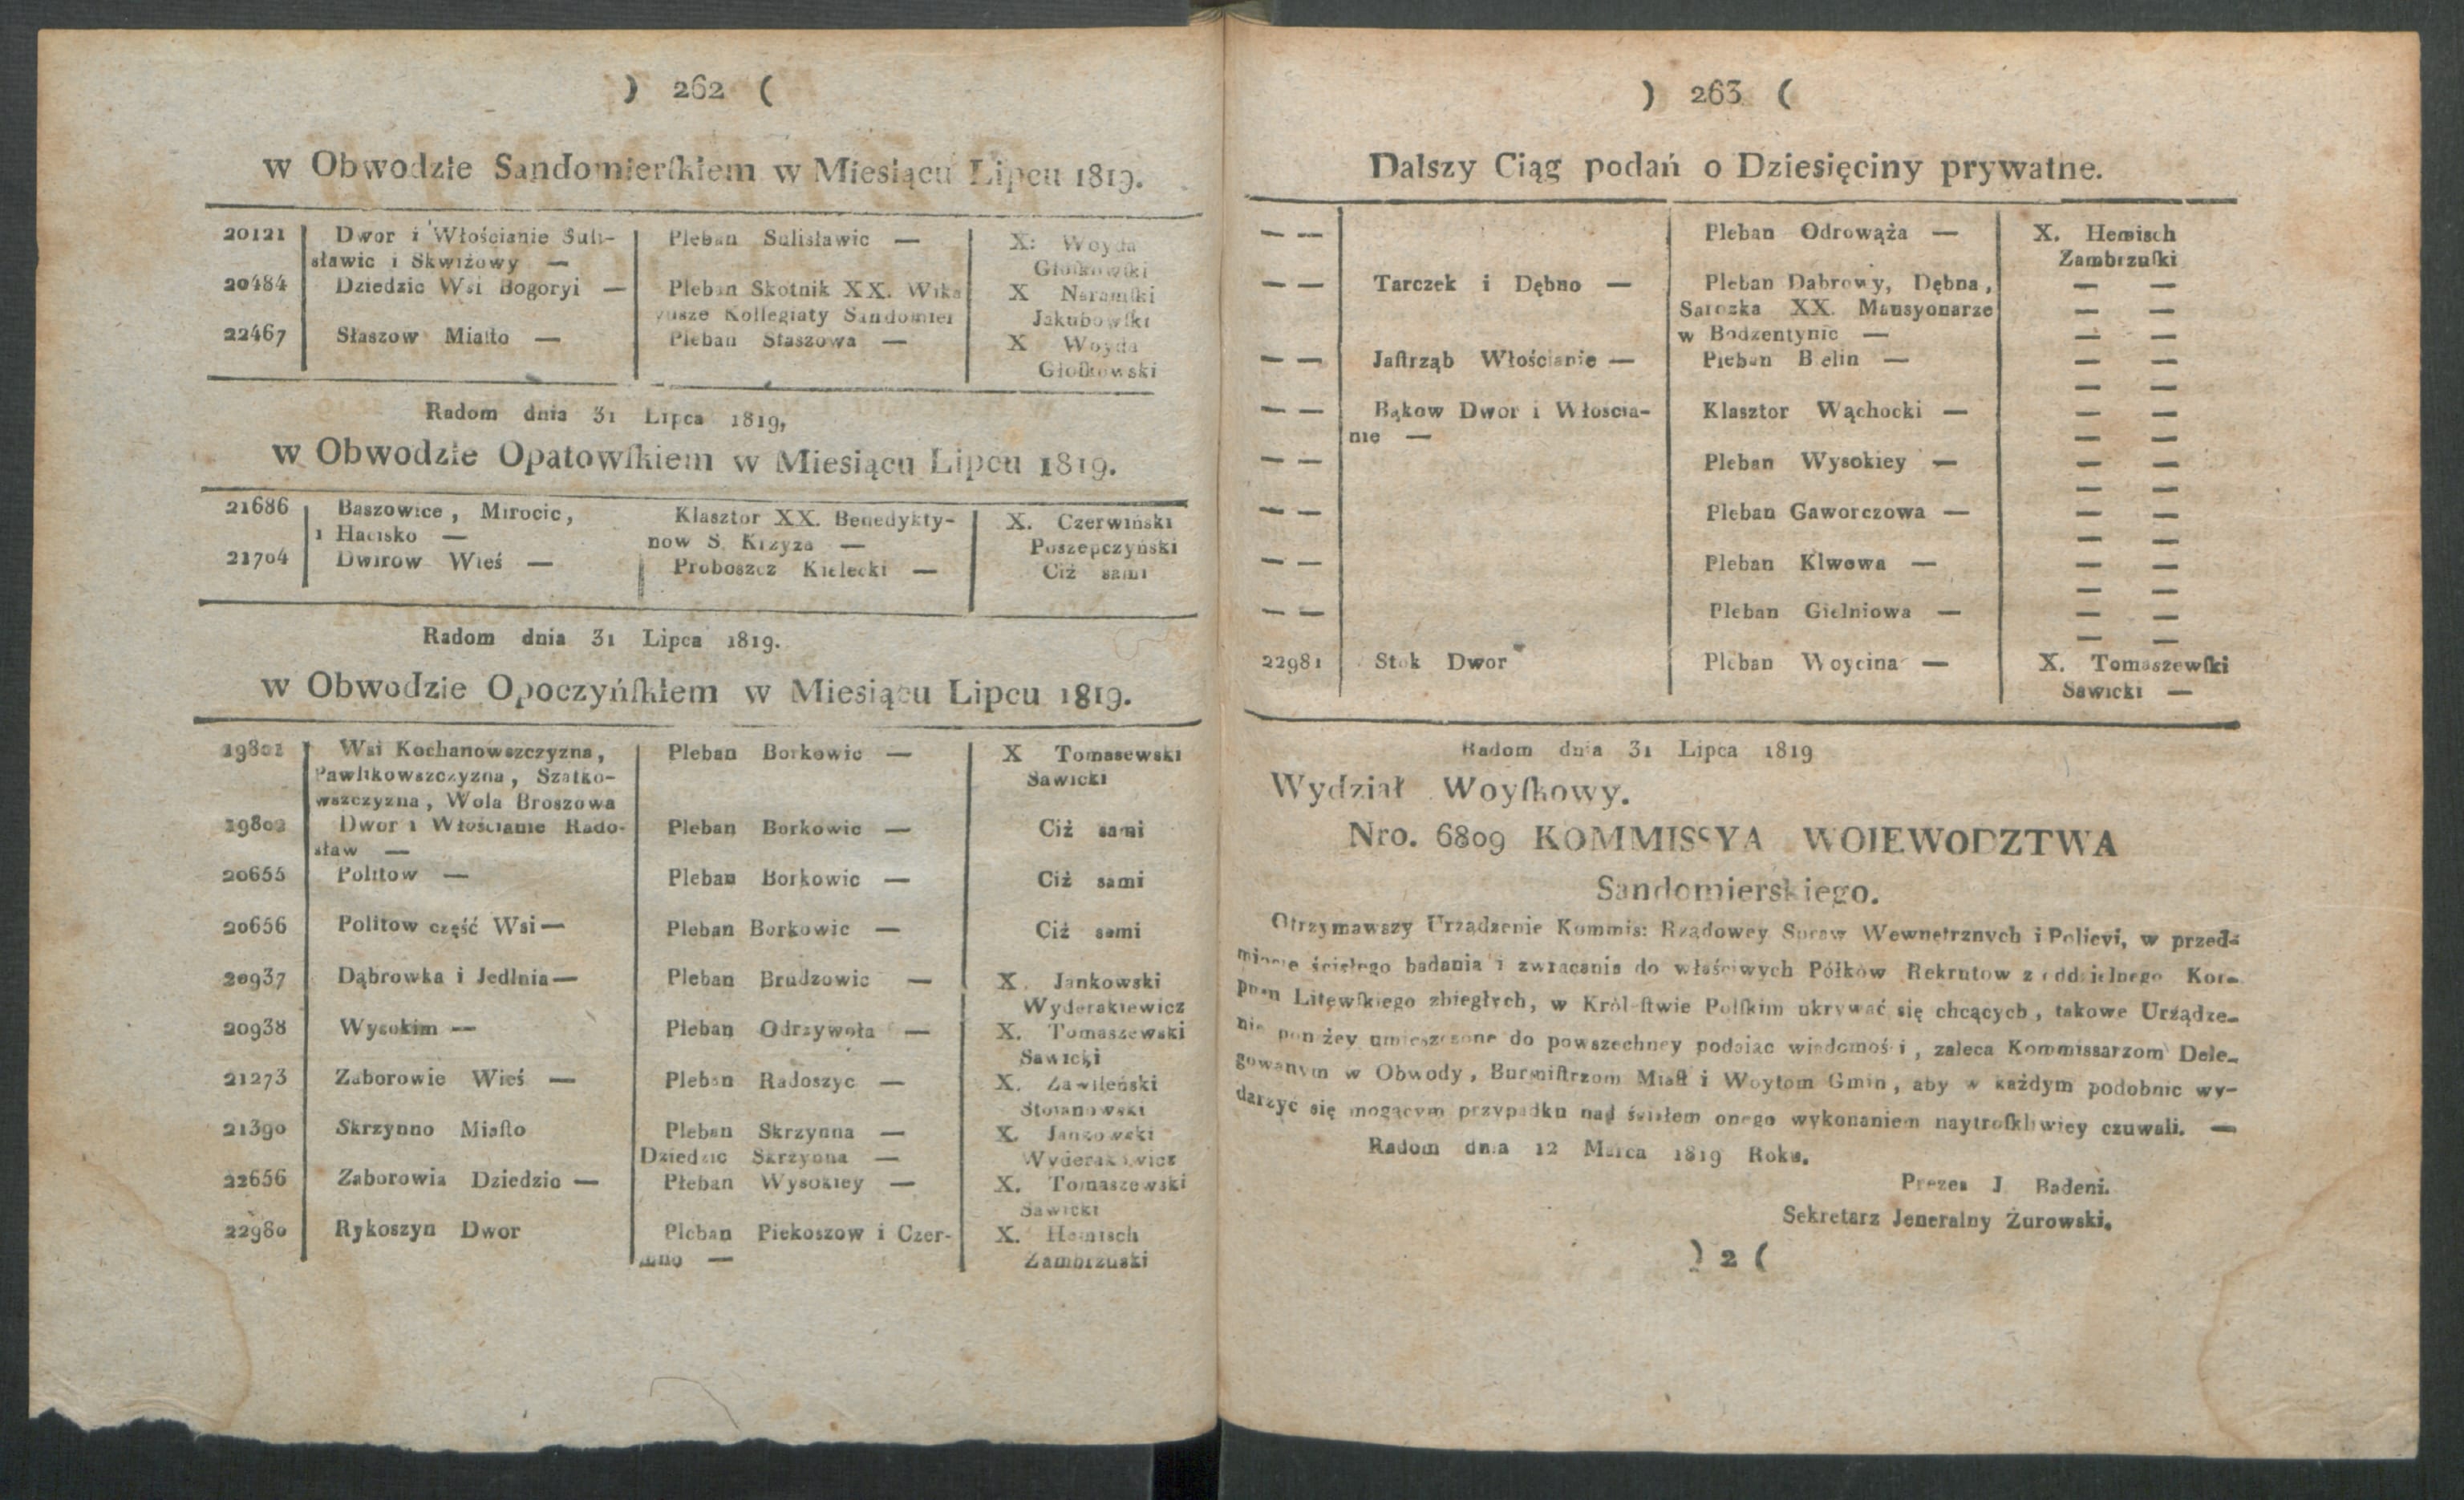 ) 262 (
w Obwodzie Sandomierſkiem w Miesiącu Lipcu 1819.
20121 Dwor i Włościanie Suli- Pleban Sulisławic — X: Woyda
sławic i Skwiżowy — Głoſkowſki
20484 Dziedzic Wsi Bogoryi — Pleban Skotnik XX. Wika X Naramſki
ryusze Kollegiaty Sandomier Jakubowſki
22467 Słaszow Miaſto — Pleban Staszowa — X Woyda
Głoſkowski
Radom dnia 31 Lipca 1819,
w Obwodzie Opatowſkiem w Miesiącu Lipcu 1819.
21686 Baszowice, Mirocic, Klasztor XX. Benedykty- X. Czerwiński
i Hacisko — now S. Krzyza — Poszepczyński
21704 Dwirow Wieś — Proboszcz Kielecki — Ciż sami
Radom dnia 31 Lipca 1819.
w Obwodzie Opoczyńſkiem w Miesiącu Lipcu 1819.
19801 Wsi Kochanowszczyzna, Pleban Borkowic — X Tomasewski
Pawlikowszczyzna, Szatko- Sawicki
wszczyzna, Wola Broszowa
19802 Dwor i Włościanie Rado- Pleban Borkowic — Ciż sami
sław —
20655 Politow — Pleban Borkowic — Ciż sami
20656 Politow część Wsi — Pleban Borkowic — Ciż sami
20937 Dąbrowka i Jedlnia — Pleban Brudzowic — X. Jankowski
Wyderakiewicz
20938 Wysokim — Pleban Odrzywoła — X. Tomaszewski
Sawicki
21273 Zaborowie Wieś — Pleban Radoszyc — X. Zawileński
Stoianowski
21390 Skrzynno Miaſto Pleban Skrzynna — X. Jankowski
Dziedzic Skrzynna — Wyderakiewicz
22656 Zaborowia Dziedzic — Pleban Wysokiey — X. Tomaszewski
Sawicki
22980 Rykoszyn Dwor Pleban Piekoszow i Czer- X. Hemisch
mno — Zambrzuski
) 263 (
Dalszy Ciąg podań o Dziesięciny prywatne.
— — Pleban Odrowąża — X. Hemisch
Zambrzuſki
— — Tarczek i Dębno — Pleban Dabrowy, Dębna, — —
Sarozka XX. Mansyonarze — —
w Bodzentynie — — —
— — Jaſtrząb Włościanie — Pleban Bielin — — —
— —
— — Bąkow Dwor i Włoscia- Klasztor Wąchocki — — —
nie — — —
— — Pleban Wysokiey — — —
— —
— — Pleban Gaworczowa — — —
— —
— — Pleban Klwowa — — —
— —
— — Pleban Gielniowa — — —
— —
22981 Stok Dwor Pleban Woycina — X. Tomaszewſki
Sawicki —
Radom dnia 31 Lipca 1819
Wydział Woyſkowy.
Nro. 6809 KOMMISSYA WOIEWODZTWA
Sandomierskiego.
Otrzymawszy Urządzenie Kommis: Rządowey Spraw Wewnętrznych i Policyi, w przed-
miocie ścisłego badania i zwracania do właściwych Półkow Rekrutow z oddzielnego Kor-
pusu Litewſkiego zbiegłych, w Króleſtwie Polſkim ukrywać się chcących, takowe Urządze-
nie poniżey umieszczone do powszechney podaiąc wiadomości, zaleca Kommissarzom Dele-
gowanym w Obwody, Burmiſtrzom Miaſt i Woytom Gmin, aby w każdym podobnie wy-
darzyć się mogącym przypadku nad ścisłem onego wykonaniem naytroſkliwiey czuwali. —
Radom dnia 12 Marca 1819 Roku.
Prezes J Badeni.
Sekretarz Jeneralny Żurowski.
) 2 (